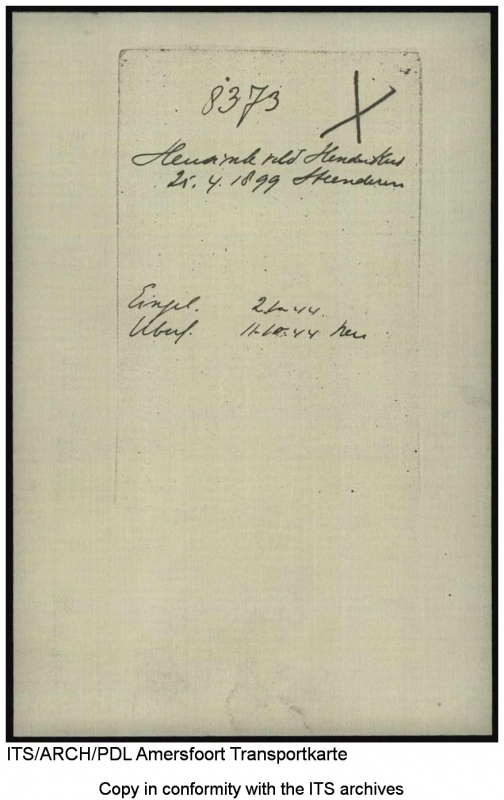 8373 X
Hendrikus
25. 4. 1899 Steenderen
Eingel. 44.
Überf. 11.10.44 Neu
ITS/ARCH/PDL Amersfoort Transportkarte
Copy in conformity with the ITS archives